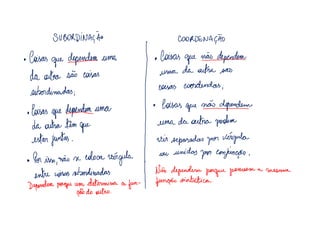 SUBORDINAÇÃO
• Coisas que dependem uma
da outra são coisas
subordinadas.
• Coisas que dependem uma
da outra têm que
estar juntas.
• Por isso, não se coloca vírgula
entre coisas subordinadas
Dependem porque um determina a fun-
ção do outro.
COORDENAÇÃO
• Coisas que não dependem
uma da outra são
coisas coordenadas.
• Coisas que não dependem
uma da outra podem
vir separadas por vírgula
ou unidas por conjunção.
Não dependem porque possuem a mesma
função sintática.